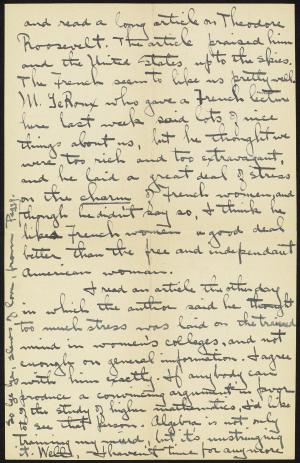 and read a long article on Theodore
Roosevelt. The article praised him
and the United States up to the skies.
The French seem to like us pretty well.
M. LeRoux who gave a French lecture
here last week said lots of nice
things about us, but he thought we
were too rich and too extravagant,
and he laid a great deal of stress
on the charm of French women, and
though he didn't say so, I think he
likes French women a good deal
better than the free and independant
American woman.
I read an article the other day
in which the author said he thought
too much stress was laid on the trained
mind in women's colleges, and not
enough on general information. I agree
with him exactly. If anybody can
produce a convincing argument in favor
of the study of higher mathematics, I'd like
to see that person. Algebra is not only
training my mind, but it's unstringing
it. Well, I haven't time for any more
so go yer, slows of love from Pegg.